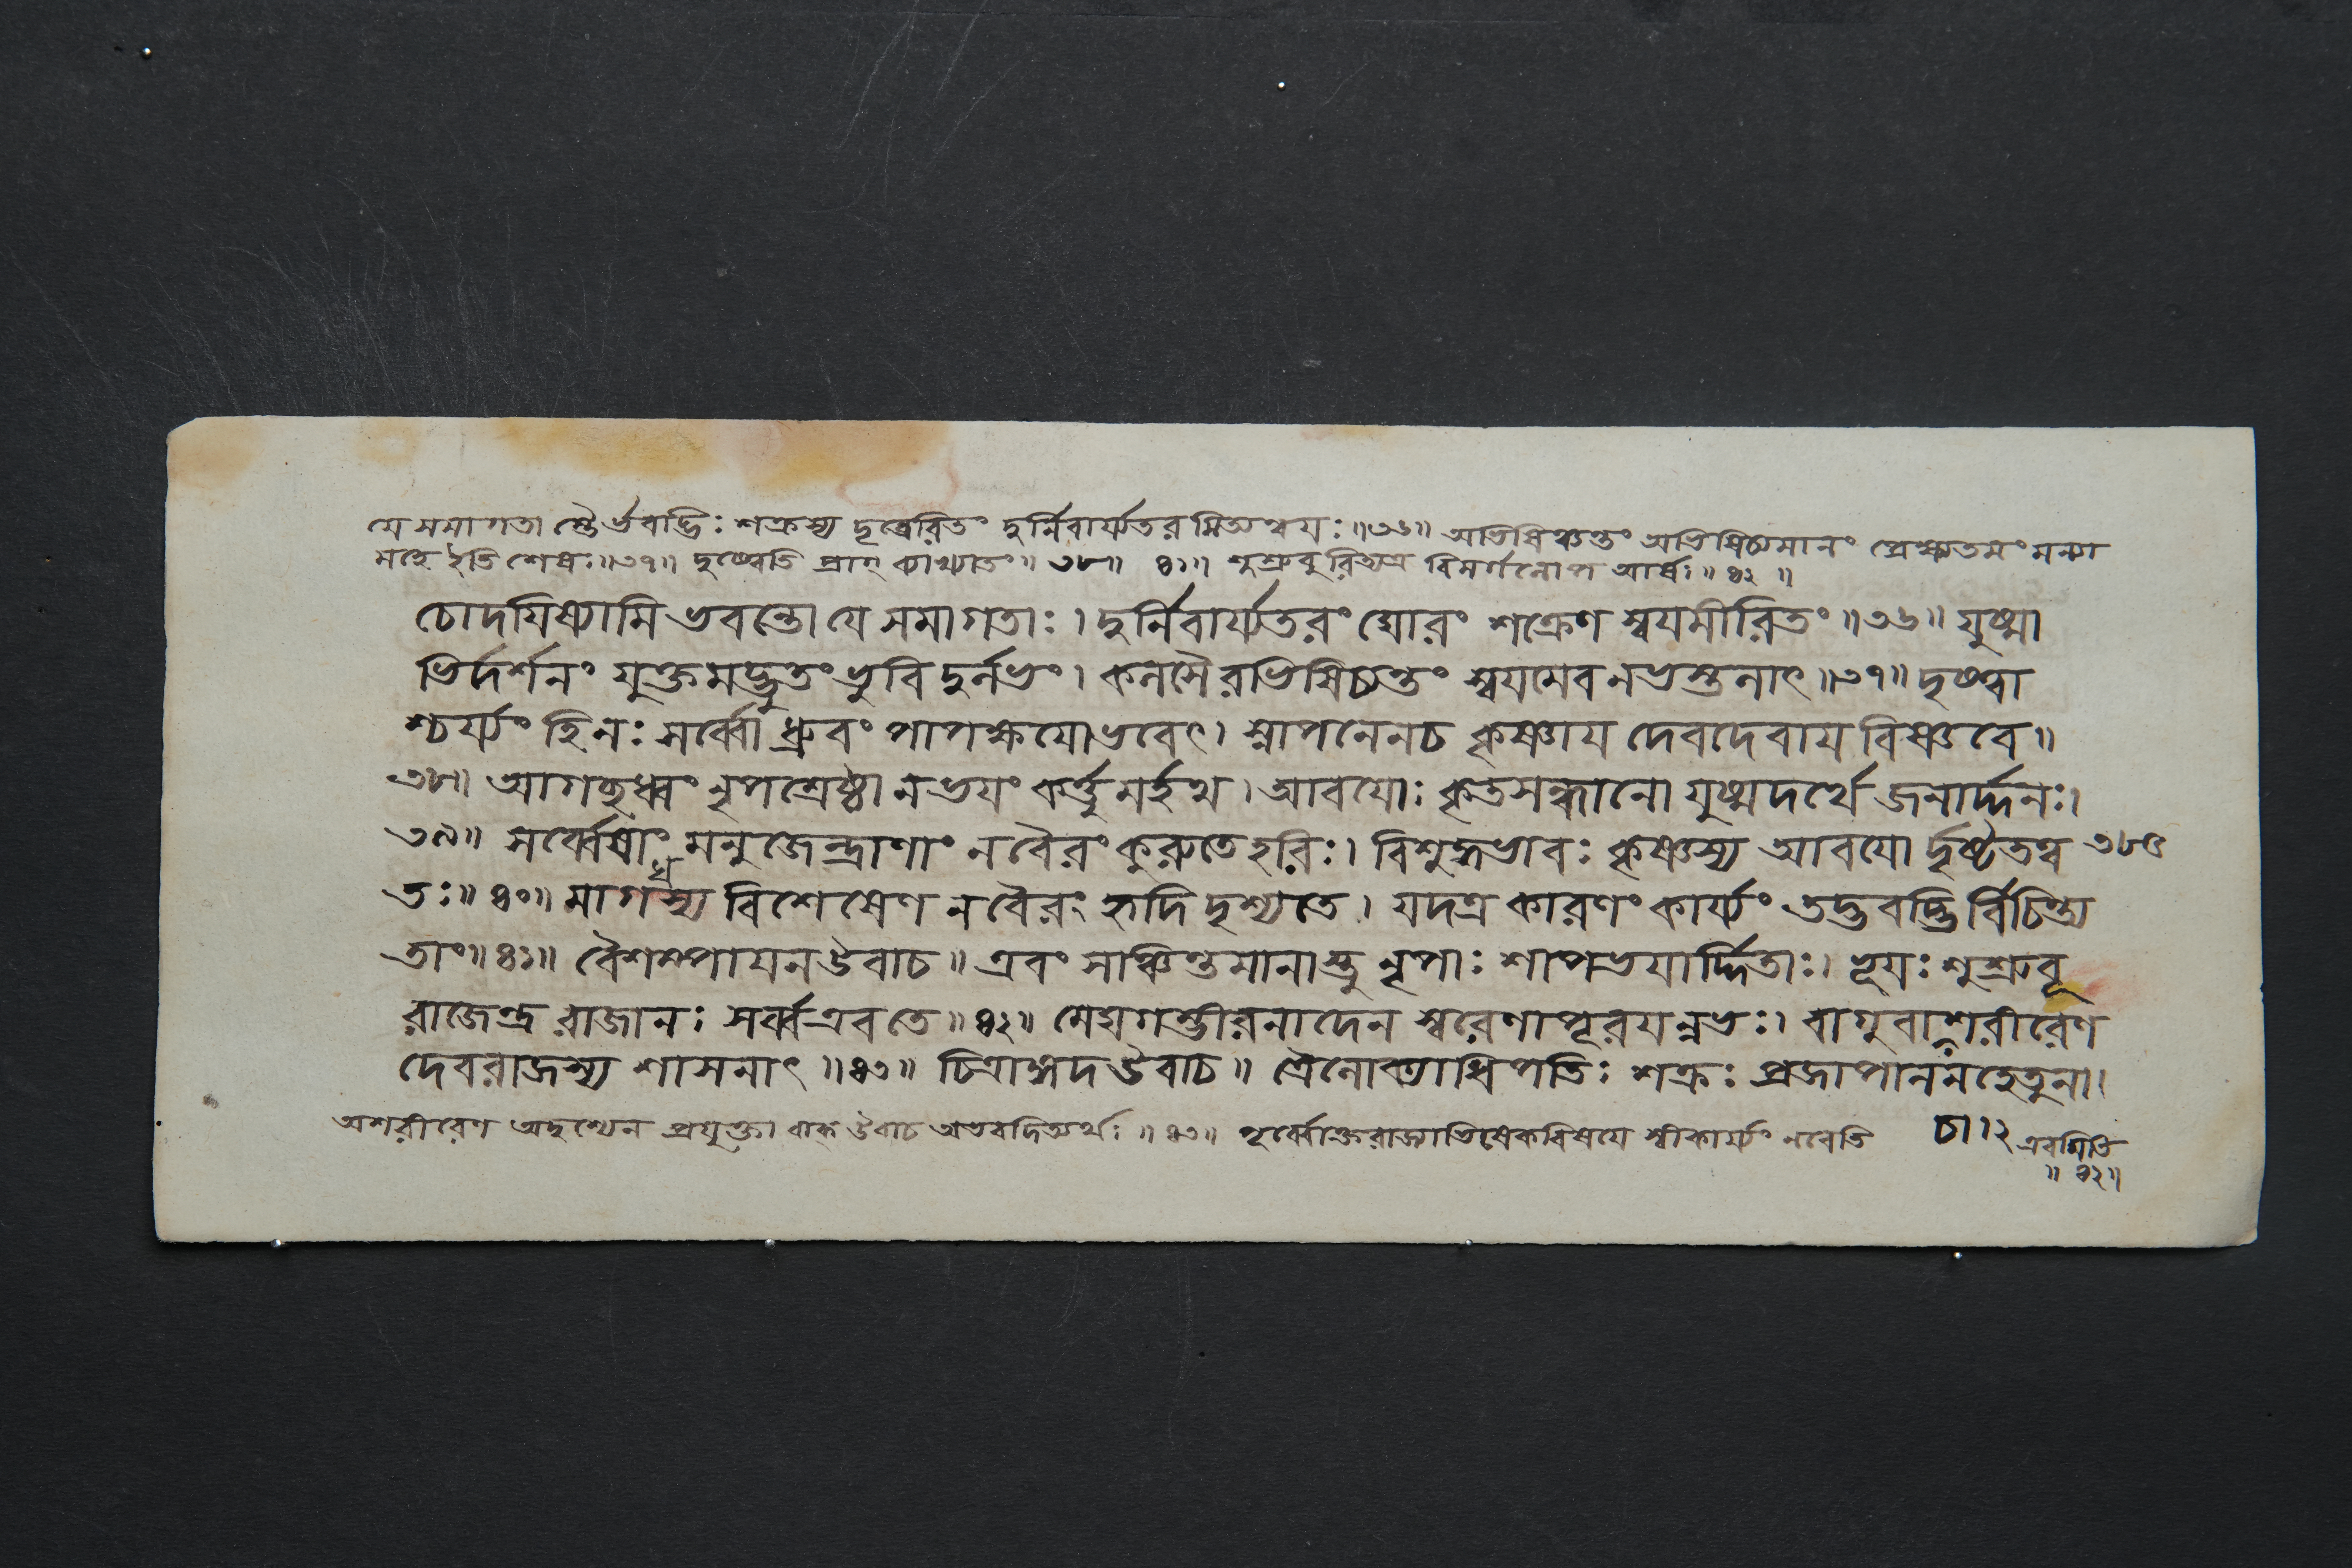 যে সমাগতা স্তৈর্ভবদ্ভিঃ শক্রস্য দূত্বেরিতং দুর্নিবার্য্যতর মিত্যন্বয়ঃ॥৩৬॥ অভিষিঞ্চন্তং অভিষিচ্যমানং প্রেক্ষ্যতমং মন্যা
মহে ইতি শেষঃ॥৩৭॥ দৃষ্ট্বেতি প্রাগ্ ব্যাখ্যাতং॥৩৮॥ ৪১॥ শুশ্রুবুরিত্যত্র বিসর্গলোপ আর্ষঃ॥৪২॥
চোদয়িষ্যামি ভবন্তো যে সমাগতাঃ। দুর্নিবার্য্যতরং ঘোরং শক্রেণ স্বয়মীরিতং॥৩৬॥ যুষ্মা
ভির্দর্শনং যুক্তমদ্ভুতং ভুবি দুর্লভং। কলসৈরভিষিচ্যন্তং স্বয়মেব নভস্তলাৎ॥৩৭॥ দৃষ্ট্বা
শ্চর্য্যং হি নঃ সর্ব্বো ধ্রুবং পাপক্ষয়োভবেৎ। স্নাপনেনচ কৃষ্ণায় দেবদেবায় বিষ্ণবে॥
৩৮॥ আগচ্ছধ্বং নৃপশ্রেষ্ঠা নভয়ং কর্ত্তুমর্হথ। আবয়োঃ কৃতসন্ধানো যুষ্মদর্থে জনার্দ্দনঃ।
৩৯॥ সর্ব্বেষাং মনুজেন্দ্রাণাং নবৈরং কুরুতে হরিঃ। বিশুদ্ধভাবঃ কৃষ্ণস্য আবয়ো র্দৃষ্টতত্ব ৩৮৫
তঃ॥৪০॥ মাগধস্য বিশেষেণ নবৈরং হৃদি দৃশ্যতে। যদত্র কারণং কার্য্যং তদ্ভবদ্ভির্বিচিন্ত্য
তাং॥৪১॥ বৈশম্পায়নউবাচ॥ এবং সঞ্চিন্তমানাস্তু নৃপাঃ শাপভয়ার্দ্দিতাঃ। ভূয়ঃ শুশ্রুবূ
রাজেন্দ্র রাজানঃ সর্ব্বএবতে॥৪২॥ মেঘগম্ভীরনাদেন স্বরেণাপূরয়ন্নভঃ। বাগুবাশরীরেণ
দেবরাজস্য শাসনাৎ॥৪৩॥ চিত্রাঙ্গদউবাচ॥ ত্রৈলোক্যাধিপতিঃ শক্রঃ প্রজাপালনহেতুনা।
অশরীরেণ অদৃশ্যেন প্রযুক্তা বাক্ উবাচ অভবদিত্যর্থঃ॥৪৩॥ পূর্ব্বোক্তরাজ্যাভিষেকবিষয়ে স্বীকার্য্যং নবেতি চা।২ এবমিতি
॥৪২॥